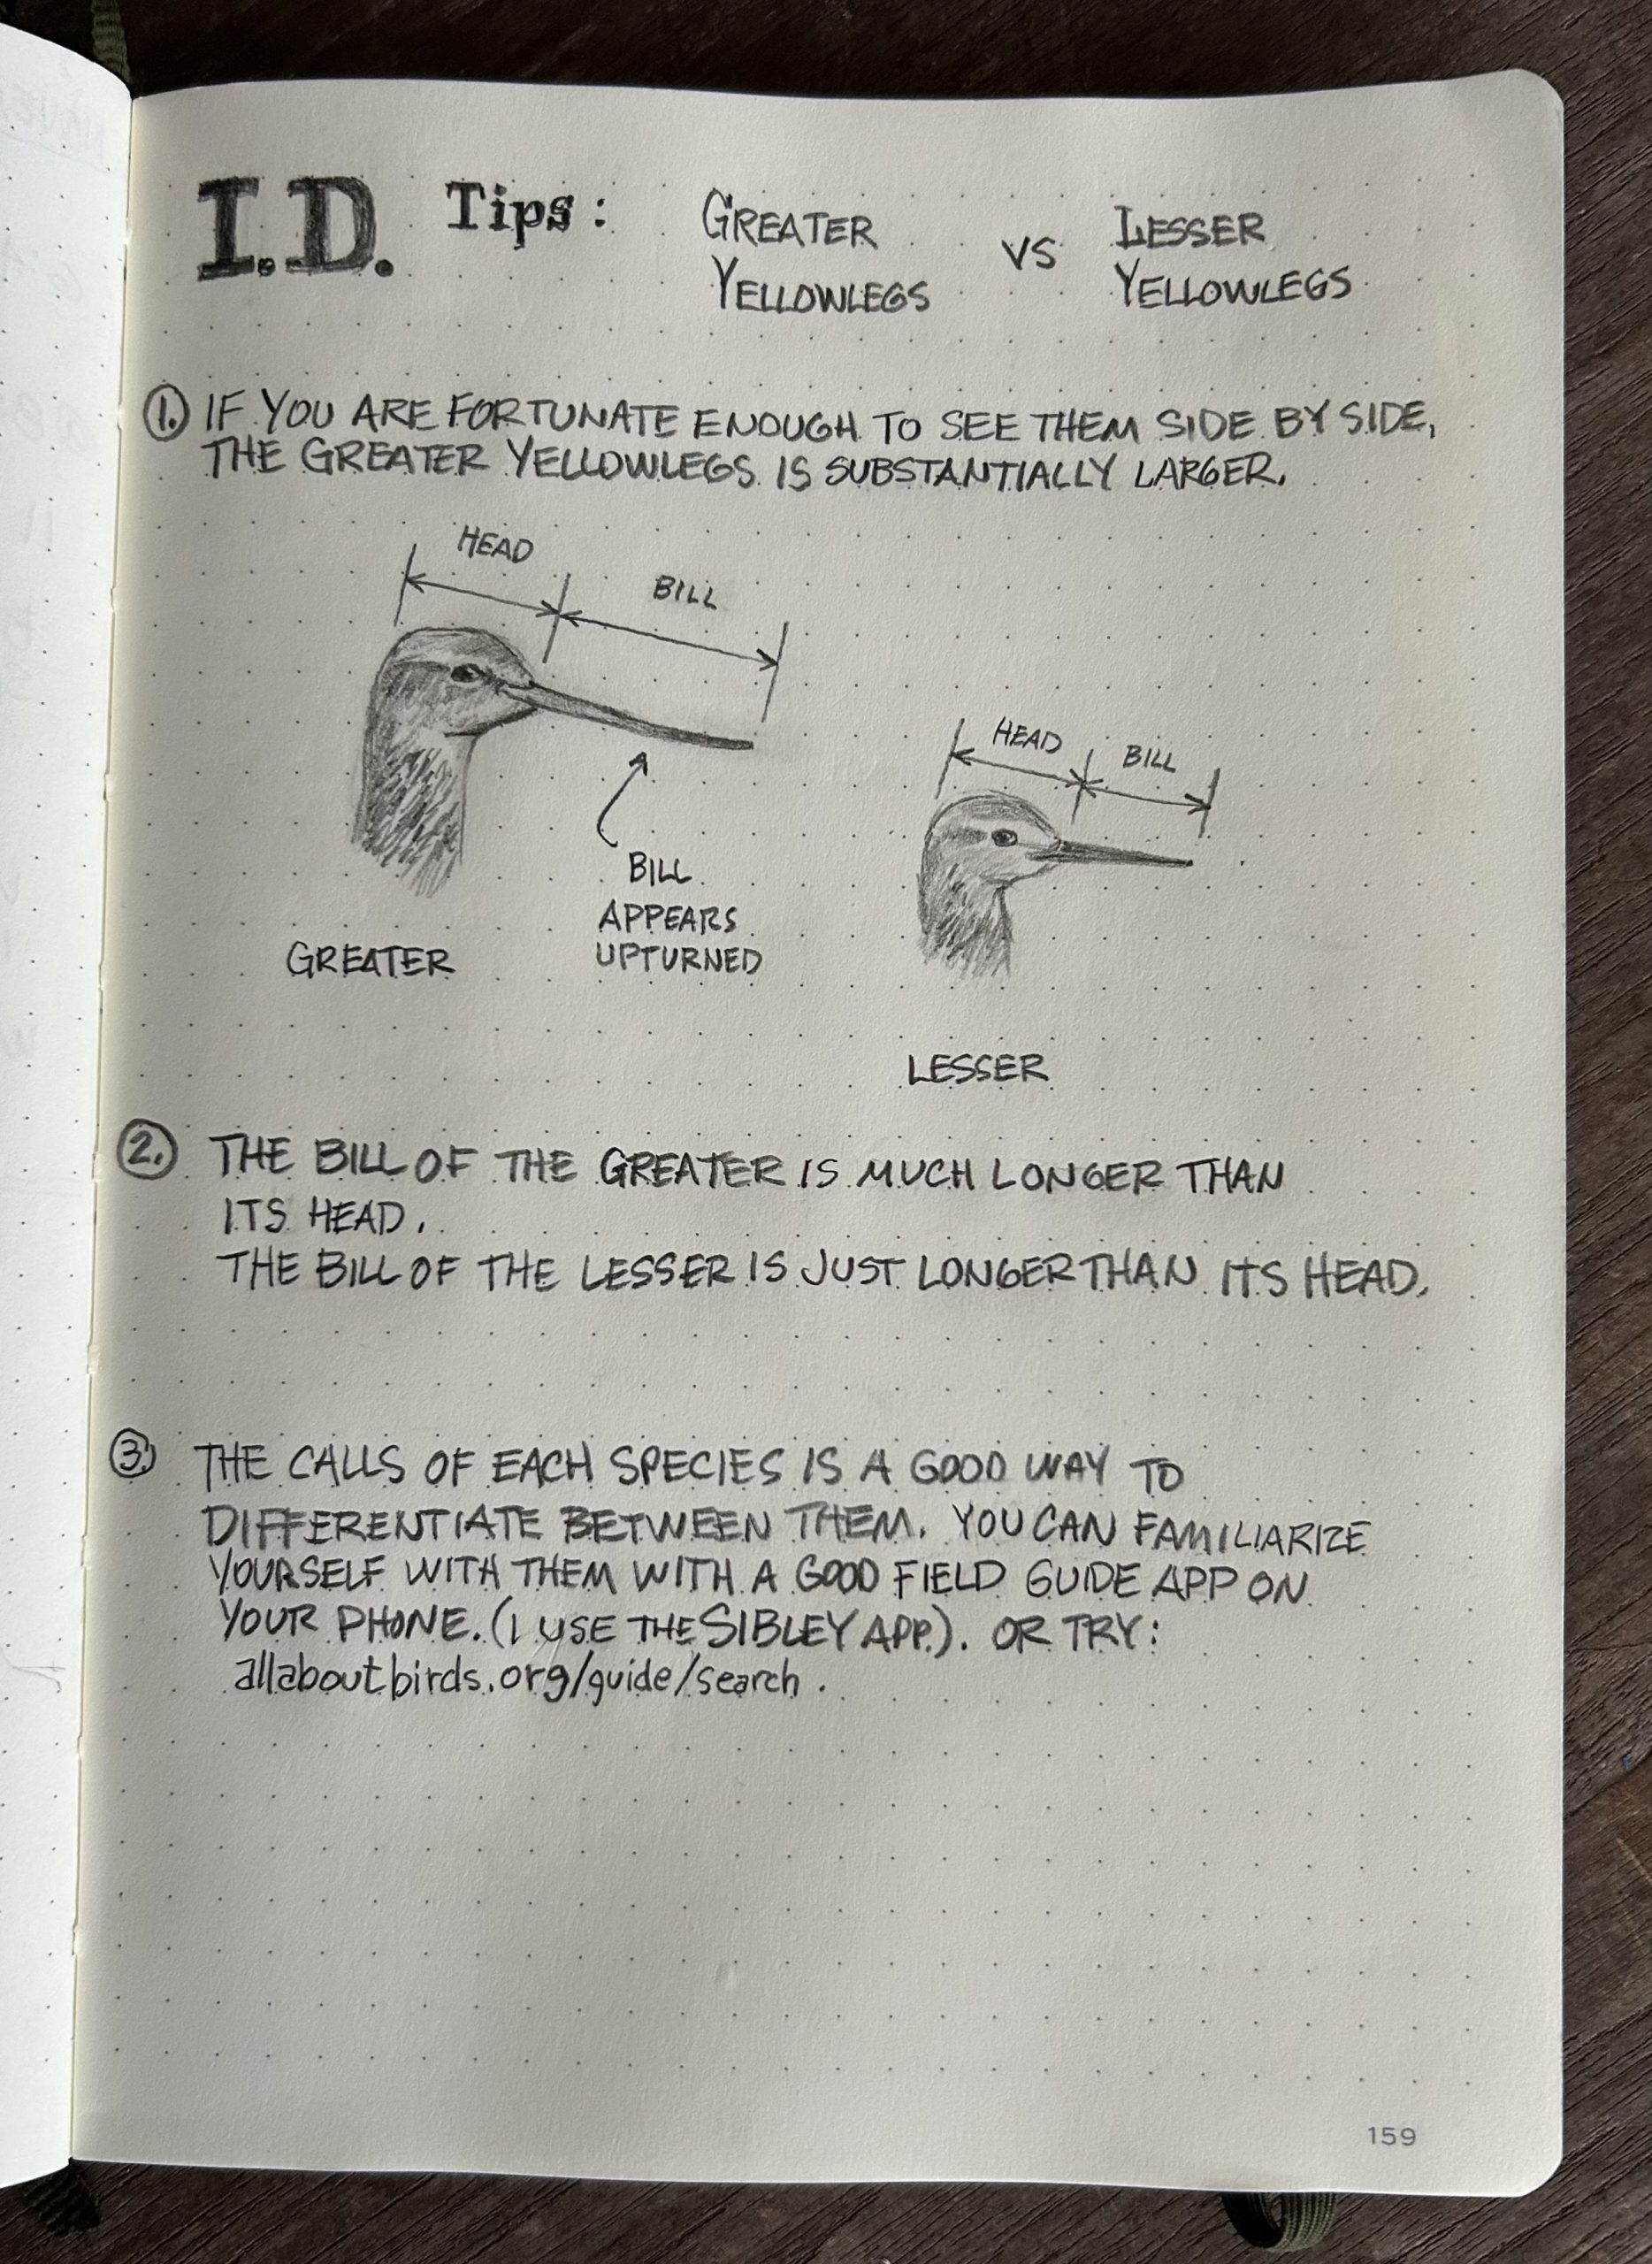 I.D. Tips: GREATER YELLOWLEGS VS LESSER YELLOWLEGS
1. IF YOU ARE FORTUNATE ENOUGH TO SEE THEM SIDE BY SIDE,
THE GREATER YELLOWLEGS IS SUBSTANTIALLY LARGER.
HEAD
BILL
HEAD
BILL
BILL
APPEARS
UPTURNED
GREATER
LESSER
2. THE BILL OF THE GREATER IS MUCH LONGER THAN
ITS HEAD.
THE BILL OF THE LESSER IS JUST LONGER THAN ITS HEAD.
3. THE CALLS OF EACH SPECIES IS A GOOD WAY TO
DIFFERENTIATE BETWEEN THEM. YOU CAN FAMILIARIZE
YOURSELF WITH THEM WITH A GOOD FIELD GUIDE APP ON
YOUR PHONE. (I USE THE SIBLEY APP.). OR TRY:
allaboutbirds.org/guide/search.
159